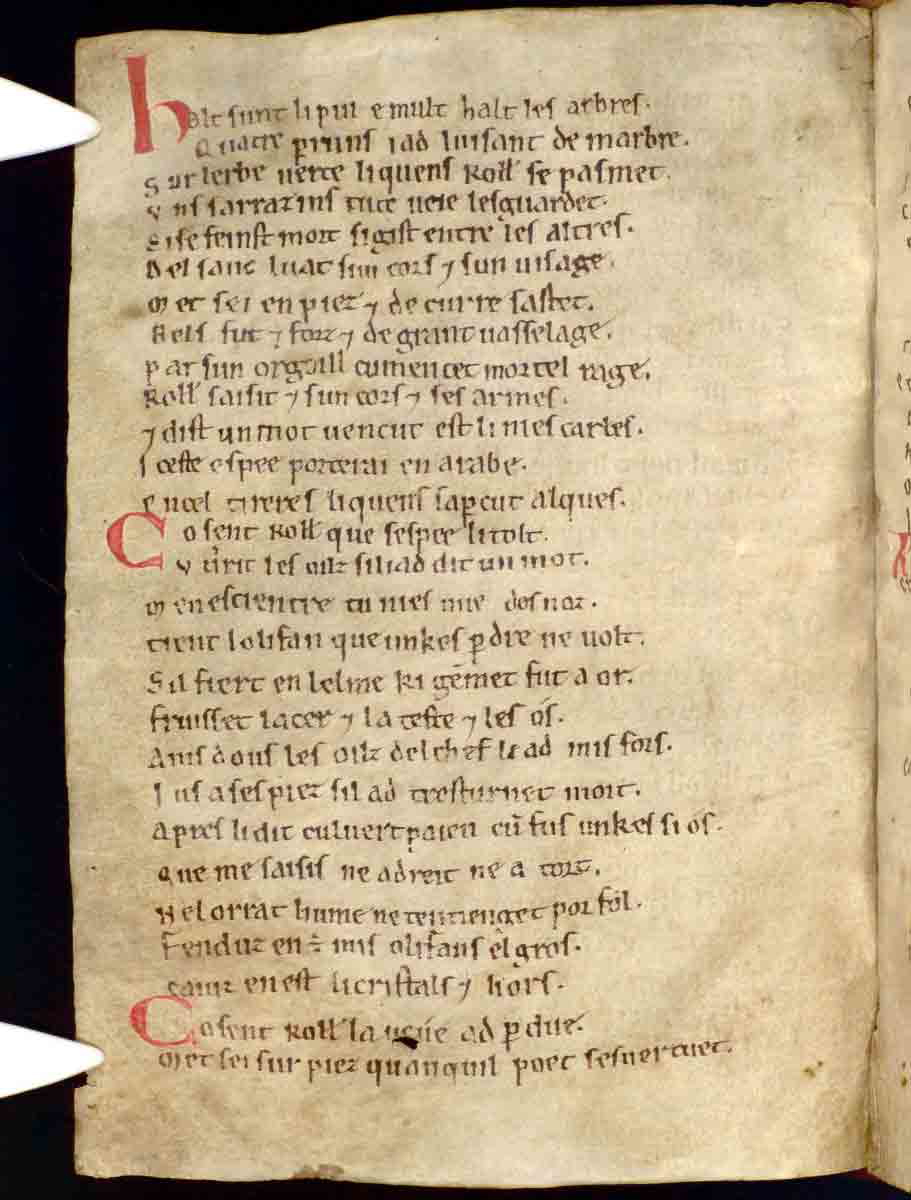 halt sunt li pui e mult halt les arbres.
Quatre pruns i ad luisant de marbre.
Sur lerbe verte li quens Roll se pasmet.
Uns sarrazins tute veie lesguardet.
Si se feinst mort si gist entre les altres.
Del sanc luat sun cors ⁊ sun visage.
Met sei en piez ⁊ de curre sastet.
Bels fut ⁊ forz ⁊ de grant vasselage.
Par sun orguill cumencet mortel rage.
Roll saisit ⁊ sun cors ⁊ ses armes.
⁊ dist un mot vencut est li nies carles.
Iceste espee porterai en arabe.
En cel tireres li quens saperçut alques.
Co sent Roll que sespee li tolt.
Uvrit les oilz si li ad dit un mot.
Men escientre tu nies mie des noz.
Tient lolifan que unkes pdre ne volt.
Sil fiert en lelme ki gemet fut a or.
Fruisset lacer ⁊ la teste ⁊ les os.
Amsdous les oilz del chef li ad mis fors.
Jus a ses piez sil ad tresturnet mort.
Apres li dit culvert paien cum fus unkes si os.
Que me saisis ne a dreit ne a tort.
Ne lorrat hume ne ten tienget por fol.
Fenduz en est mis olifans el gros.
Caiuz en est li cristals ⁊ li ors.
Co sent Roll la veue ad pdue.
Met sei sur piez quanquil poet sesvertuet.